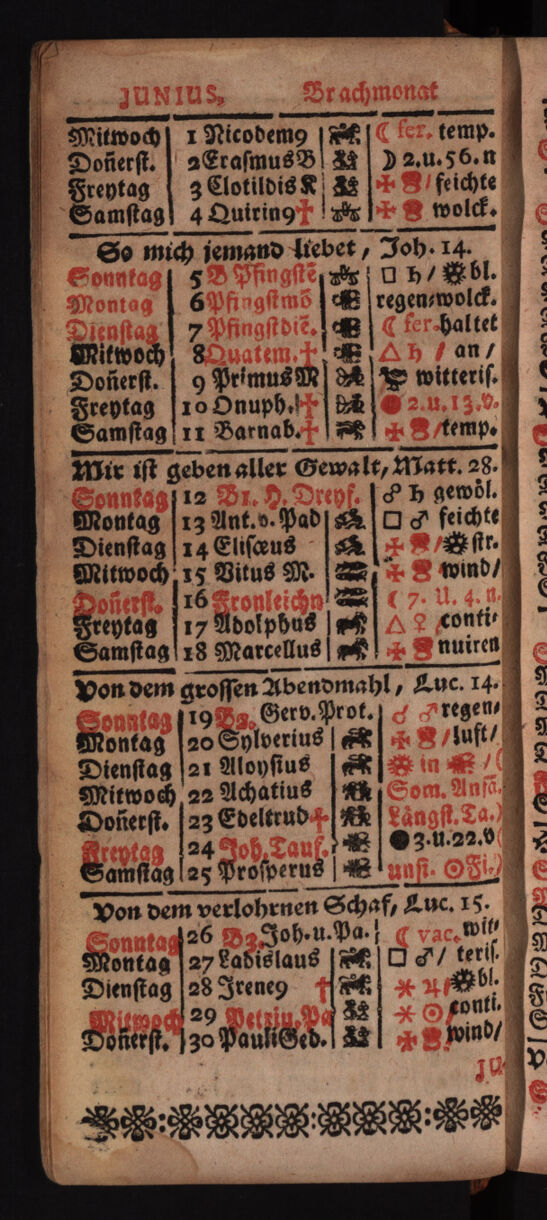 JUNIUS, Brachmonat
Mitwoch 1 Nicodem9 ☾ fer. temp.
Don̄erst. 2 Erasmus B ☽ 2.u.56.n
Freytag 3 Clotildis K ✠ / feichte
Samstag 4 Quirin9 ✝ ✠ wolck.
So mich jemand liebet, Joh. 14.
Sonntag 5 B Pfingstē □ ♄ / bl.
Montag 6 Pfingstmō regen⸗wolck.
Dienstag 7 Pfingstdiē. ☾ fer. haltet
Mitwoch 8 Quatem. ✝ △ ♄ / an /
Don̄erst. 9 Primus M witteris.
Freytag 10 Onuph. ✝ ● 2.u.13.v.
Samstag 11 Barnab. ✝ ✠ / temp.
Mir ist geben aller Gewalt, Matt. 28.
Sonntag 12 B1. H. Dreyf. ☍ ♄ gewöl.
Montag 13 Ant. v. Pad □ ♂ feichte
Dienstag 14 Elisœus ✠ / str.
Mitwoch 15 Vitus M. ✠ wind/
Don̄erst. 16 Fronleichn ☾ 7. U. 4. n.
Freytag 17 Adolphus △ ♀ conti⸗
Samstag 18 Marcellus ✠ nuiren
Von dem grossen Abendmahl, Luc. 14.
Sonntag 19 B2. Gerv. Prot. ☌ ♂ regen⸗
Montag 20 Sylverius ✠ / luft /
Dienstag 21 Aloysius in / (
Mitwoch 22 Achatius Som. Anfā.
Don̄erst. 23 Edeltrud ✝ Längst. Ta.)
Freytag 24 Joh. Tauf. ● 3.u.22.v (
Samstag 25 Prosperus unsi. ☉ Fi.)
Von dem verlohrnen Schaf, Luc. 15.
Sonntag 26 B3. Joh. u. Pa. ☾ vac. wit⸗
Montag 27 Ladislaus □ ♂ / teris.
Dienstag 28 Irene9 ✝ ✶ ♃ / bl.
Mitwoch 29 Petriu. Pa ✶ ☉ conti.
Don̄erst. 30 Pauli Ged. ✠ wind/
JU⸗